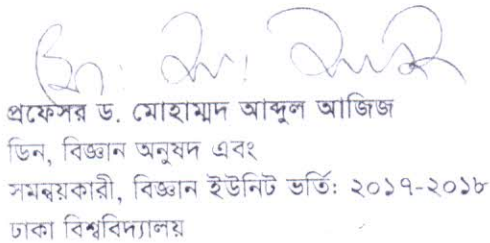 প্রফেসর ড. মোহাম্মদ আব্দুল আজিজ
ডিন, বিজ্ঞান অনুষদ এবং
সমন্বয়কারী, বিজ্ঞান ইউনিট ভর্তি: ২০১৭-২০১৮
ঢাকা বিশ্ববিদ্যালয়